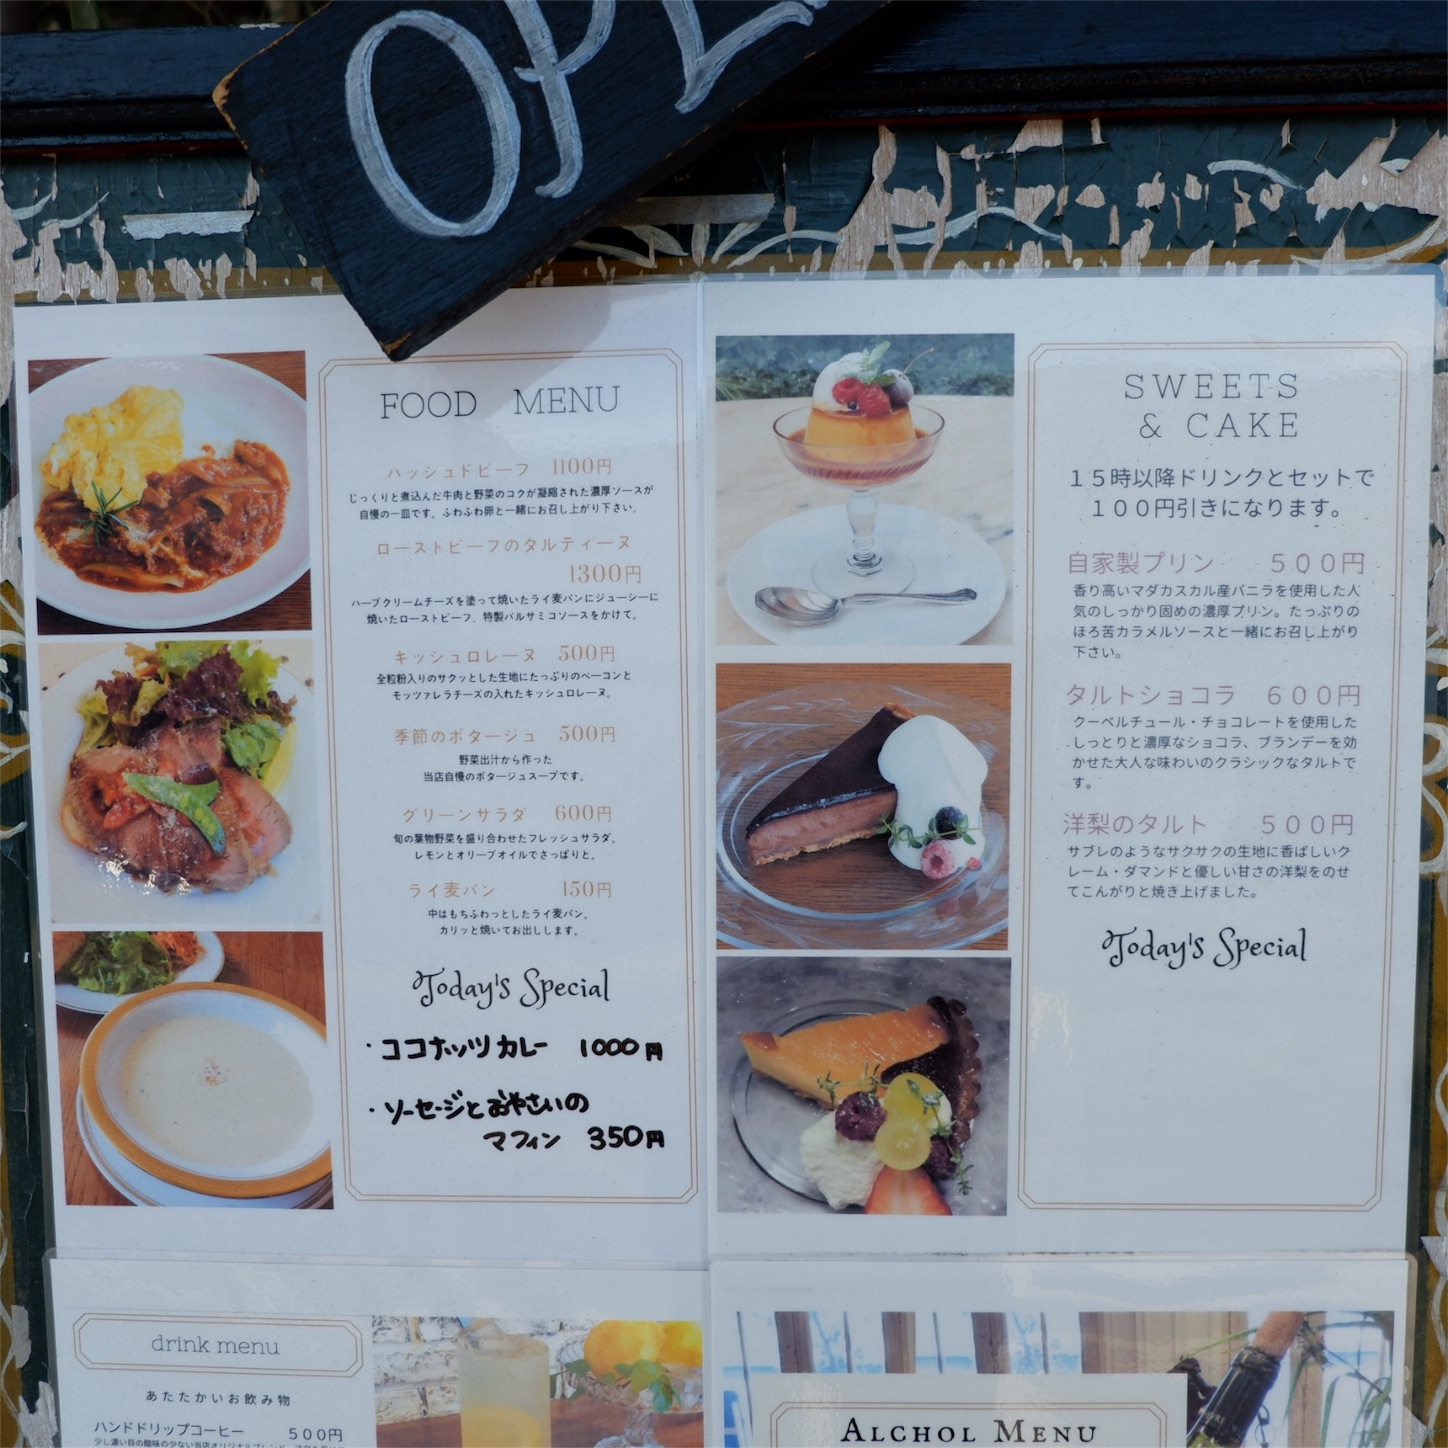 OPE
FOOD MENU
ハッシュドビーフ 1100円
じっくりと煮込んだ牛肉と野菜のコクが凝縮された濃厚ソースが
自慢の一皿です。ふわふわ卵と一緒にお召し上がり下さい。
ローストビーフのタルティーヌ
1300円
ハーブクリームチーズを塗って焼いたライ麦パンにジューシーに
焼いたローストビーフ、特製バルサミコソースをかけて。
キッシュロレーヌ 500円
全粒粉入りのサクッとした生地にたっぷりのベーコンと
モッツァレラチーズの入れたキッシュロレーヌ。
季節のポタージュ 500円
野菜出汁から作った
当店自慢のポタージュスープです。
グリーンサラダ 600円
旬の葉物野菜を盛り合わせたフレッシュサラダ。
レモンとオリーブオイルでさっぱりと。
ライ麦パン 150円
中はもちふわっとしたライ麦パン。
カリッと焼いてお出しします。
Today's Special
・ココナッツカレー 1000円
・ソーセージとおやさいの
マフィン 350円
SWEETS
& CAKE
１５時以降ドリンクとセットで
１００円引きになります。
自家製プリン ５００円
香り高いマダカスカル産バニラを使用した人
気のしっかり固めの濃厚プリン。たっぷりの
ほろ苦カラメルソースと一緒にお召し上がり
下さい。
タルトショコラ ６００円
クーベルチュール・チョコレートを使用した
しっとりと濃厚なショコラ、ブランデーを効
かせた大人な味わいのクラシックなタルトで
す。
洋梨のタルト ５００円
サブレのようなサクサクの生地に香ばしいク
レーム・ダマンドと優しい甘さの洋梨をのせ
てこんがりと焼き上げました。
Today's Special
drink menu
あたたかいお飲み物
ハンドドリップコーヒー ５００円
少し濃い目の酸味の少ない当店オリジナルブレンド。
ALCHOL MENU